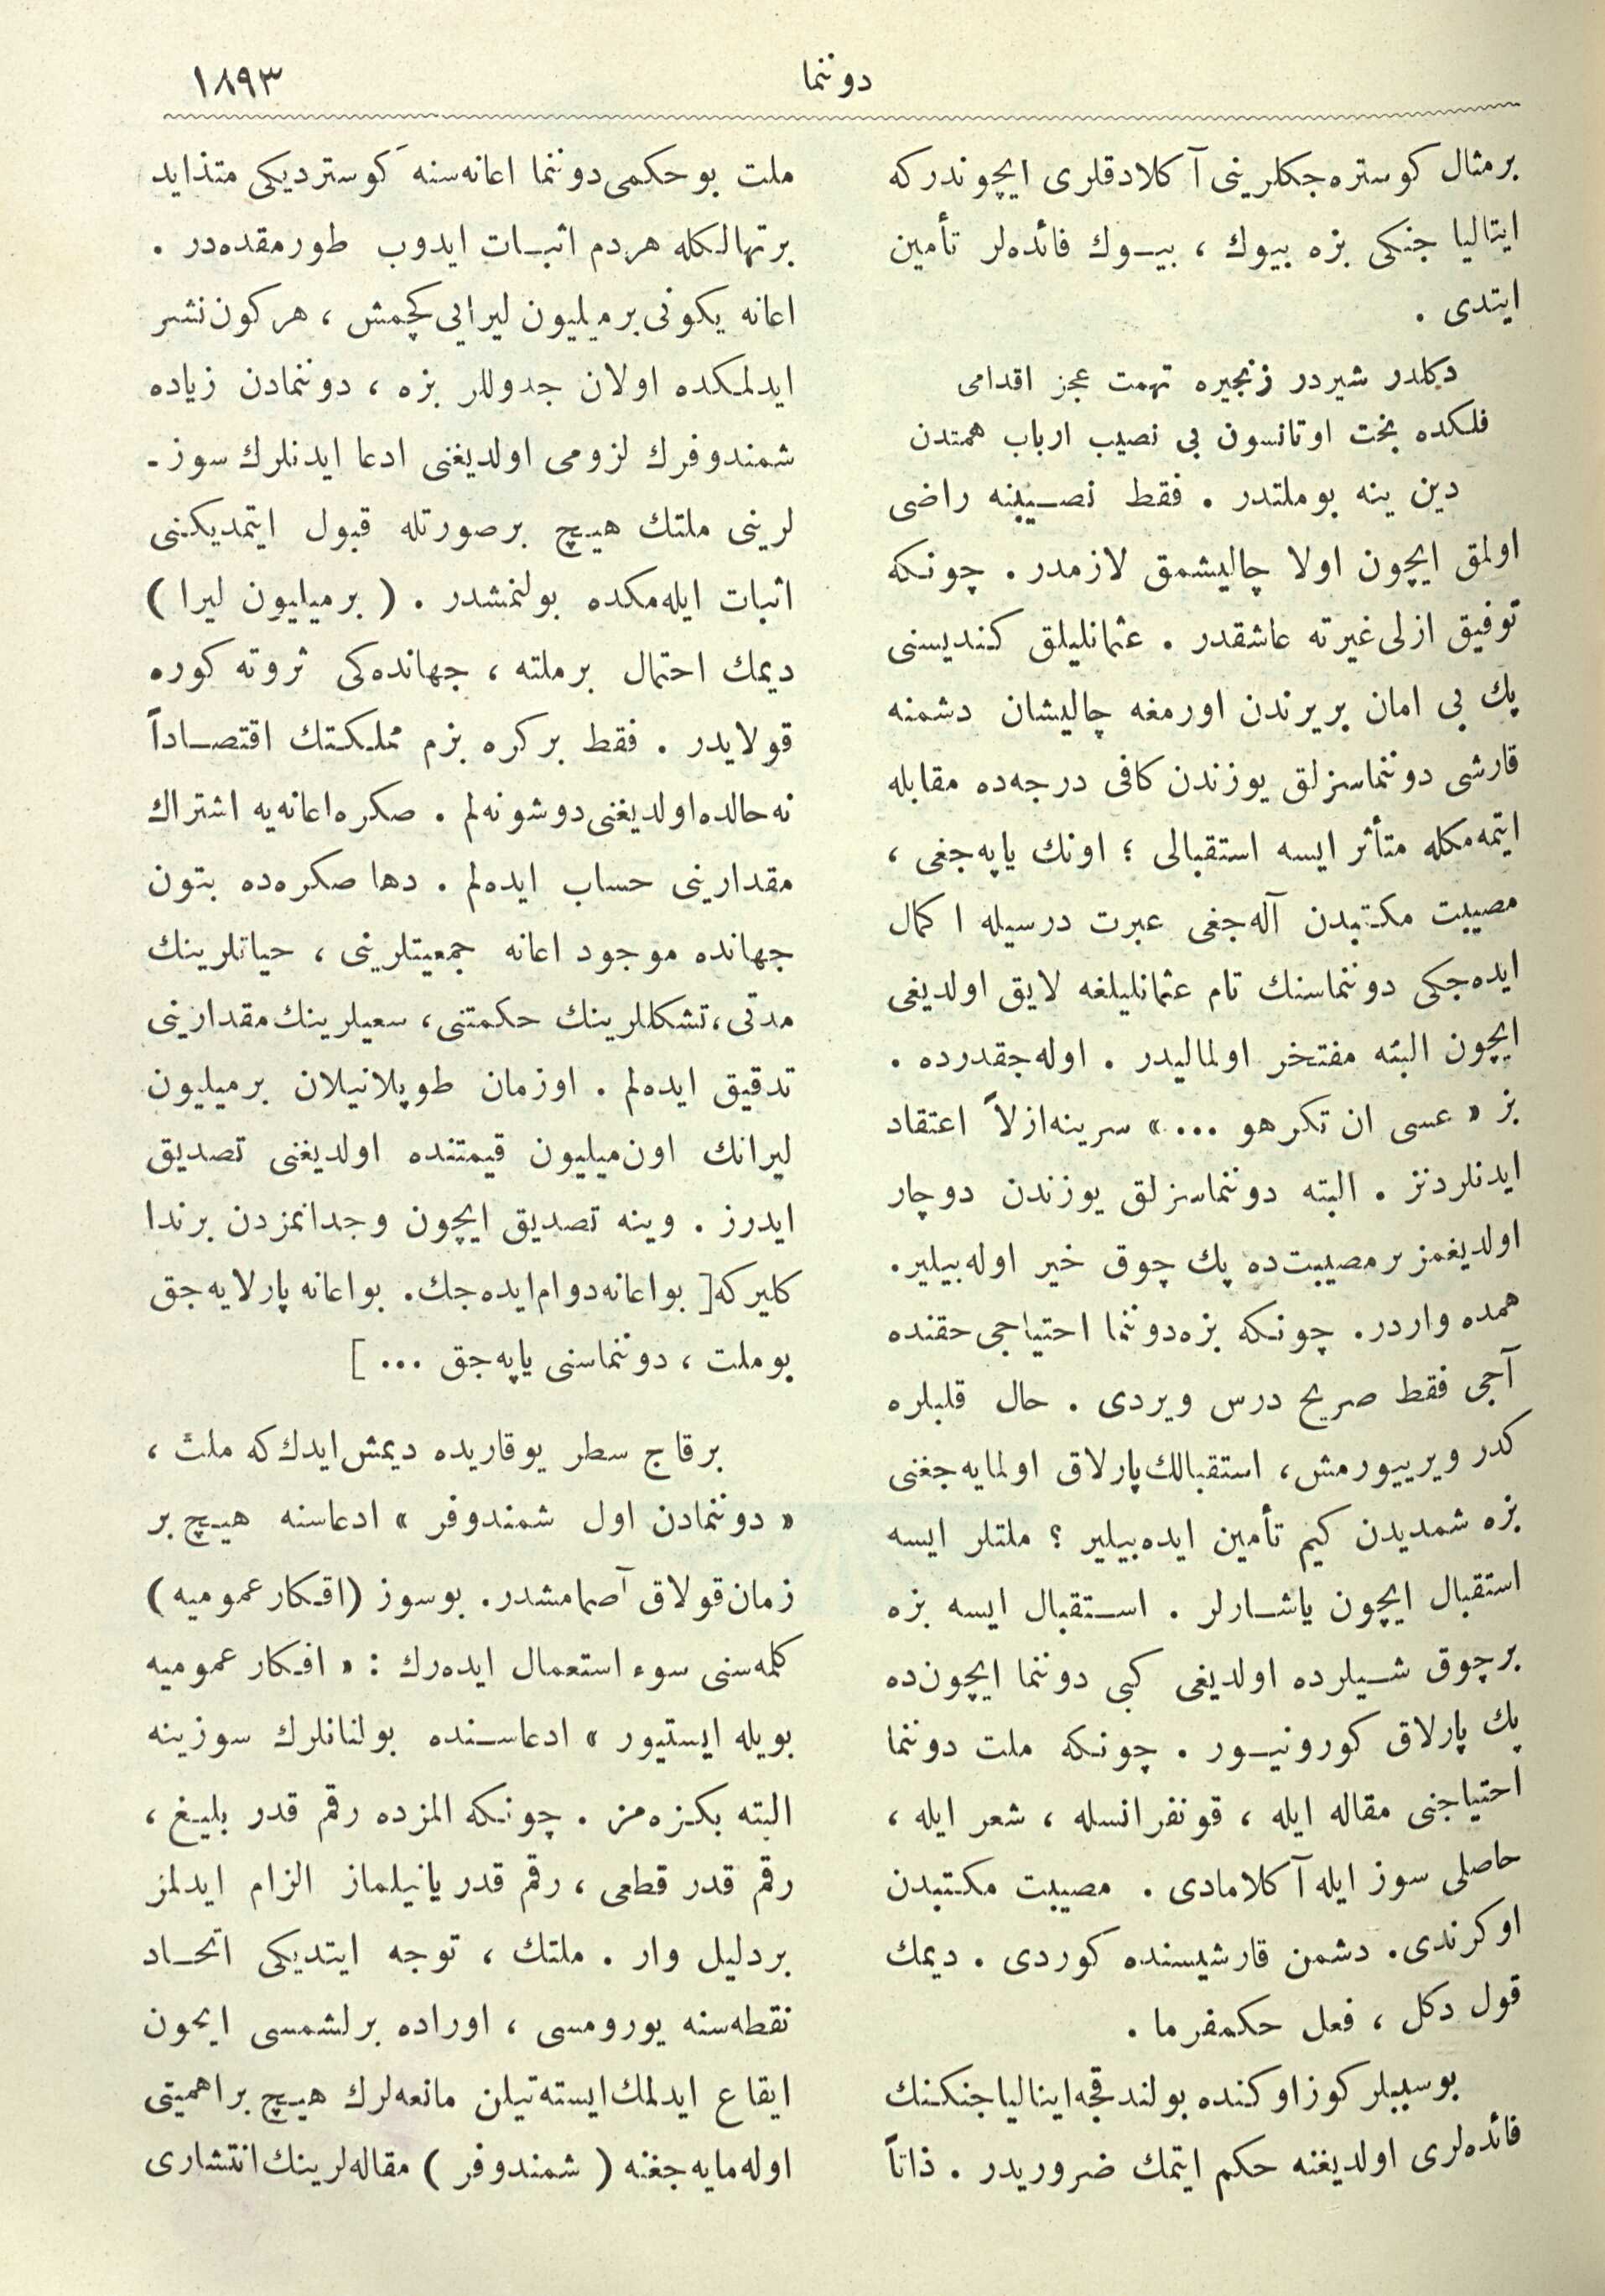 دوننما
١٨٩٣
برمثال كوستره‌جكلرينی آكلادقلری ايچوندركه
ايتاليا جنكی بزه بيوك ، بيوك فائده‌لر تأمين
ايتدی .
دكلدر شيردر زنجيره تهمت عجز اقدامی
فلكده بخت اوتانسون بی نصيب ارباب همتدن
دين ينه بوملتدر . فقط نصيبنه راضی
اولمق ايچون اولا چاليشمق لازمدر . چونكه
توفيق ازلی غيرته عاشقدر . عثمانليلق كنديسنی
پك بی امان بريرندن اورمغه چاليشان دشمنه
قارشی دوننماسزلق يوزندن كافی درجه‌ده مقابله
ايتمه‌مكله متأثر ايسه استقبالی ؛ اونك ياپه‌جغی ،
مصيبت مكتبدن آله‌جغی عبرت درسيله اكمال
ايده‌جكی دوننماسنك تام عثمانليلغه لايق اولديغی
ايچون البته مفتخر اولماليدر . اوله‌جقدرده .
بز « عسی ان تكرهو ... » سرينه ازلاً اعتقاد
ايدنلردنز . البته دوننماسزلق يوزندن دوچار
اولديغمز برمصيبت‌ده پك چوق خير اوله‌بيلير.
همده واردر. چونكه بزه دوننما احتياجی حقنده
آجی فقط صريح درس ويردی . حال قلبلره
كدر ويرييورمش، استقبالك پارلاق اولمايه‌جغنی
بزه شمديدن كيم تأمين ايده‌بيلير ؟ ملتلر ايسه
استقبال ايچون ياشارلر . استقبال ايسه بزه
برچوق شيلرده اولديغی كبی دوننما ايچون‌ده
پك پارلاق كورونيور . چونكه ملت دوننما
احتياجنی مقاله ايله ، قونفرانسله ، شعر ايله ،
حاصلی سوز ايله آكلامادی . مصيبت مكتبدن
اوكرندی. دشمن قارشيسنده كوردی . ديمك
قول دكل ، فعل حكمفرما .
بوسببلر كوز اوكنده بولندقجه ايتاليا جنكنك
فائده‌لری اولديغنه حكم ايتمك ضروريدر . ذاتاً
ملت بوحكمی دوننما اعانه‌سنه كوستردیكی متذايد
برتهالكله هردم اثبات ايدوب طورمقده‌در .
اعانه يكونی برميليون ليرايی كچمش ، هركون نشر
ايدلمكده اولان جدوللر بزه ، دوننمادن زياده
شمندوفرك لزومی اولديغنی ادعا ايدنلرك سوز-
لرينی ملتك هيچ برصورتله قبول ايتمديكنی
اثبات ايله‌مكده بولنمشدر . ( برميليون ليرا )
ديمك احتمال برملته ، جهانده‌كی ثروته كوره
قولايدر . فقط بركره بزم مملكتك اقتصاداً
نه حالده اولديغنی دوشونه‌لم . صكره اعانه‌يه اشتراك
مقدارينی حساب ايده‌لم . دها صكره‌ده بتون
جهانده موجود اعانه جمعيتلرينی ، حياتلرينك
مدتی، تشكللرينك حكمتنی، سعيلرينك مقدارينی
تدقيق ايده‌لم . اوزمان طوپلانيلان برميليون
ليرانك اون‌ميليون قيمتنده اولديغنی تصديق
ايدرز . وينه تصديق ايچون وجدانمزدن برندا
كليركه[ بواعانه دوام ايده‌جك. بواعانه پارلايه‌جق
بوملت ، دوننماسنی ياپه‌جق ... ]
برقاچ سطر يوقاريده ديمش ايدك كه ملت ،
« دوننمادن اول شمندوفر » ادعاسنه هيچ بر
زمان قولاق آصمامشدر. بوسوز (افكار عموميه)
كلمه‌سنی سوء استعمال ايده‌رك : « افكار عموميه
بويله ايستيور » ادعاسنده بولنانلرك سوزينه
البته بكزه‌مز . چونكه المزده رقم قدر بليغ ،
رقم قدر قطعی ، رقم قدر يانيلماز الزام ايدلمز
بردليل وار . ملتك ، توجه ايتديكی اتحاد
نقطه‌سنه يورومسی ، اوراده برلشمسی ايچون
ايقاع ايدلمك ايسته‌نيلن مانعه‌لرك هيچ براهميتی
اوله‌مايه‌جغنه ( شمندوفر ) مقاله‌لرينك انتشاری